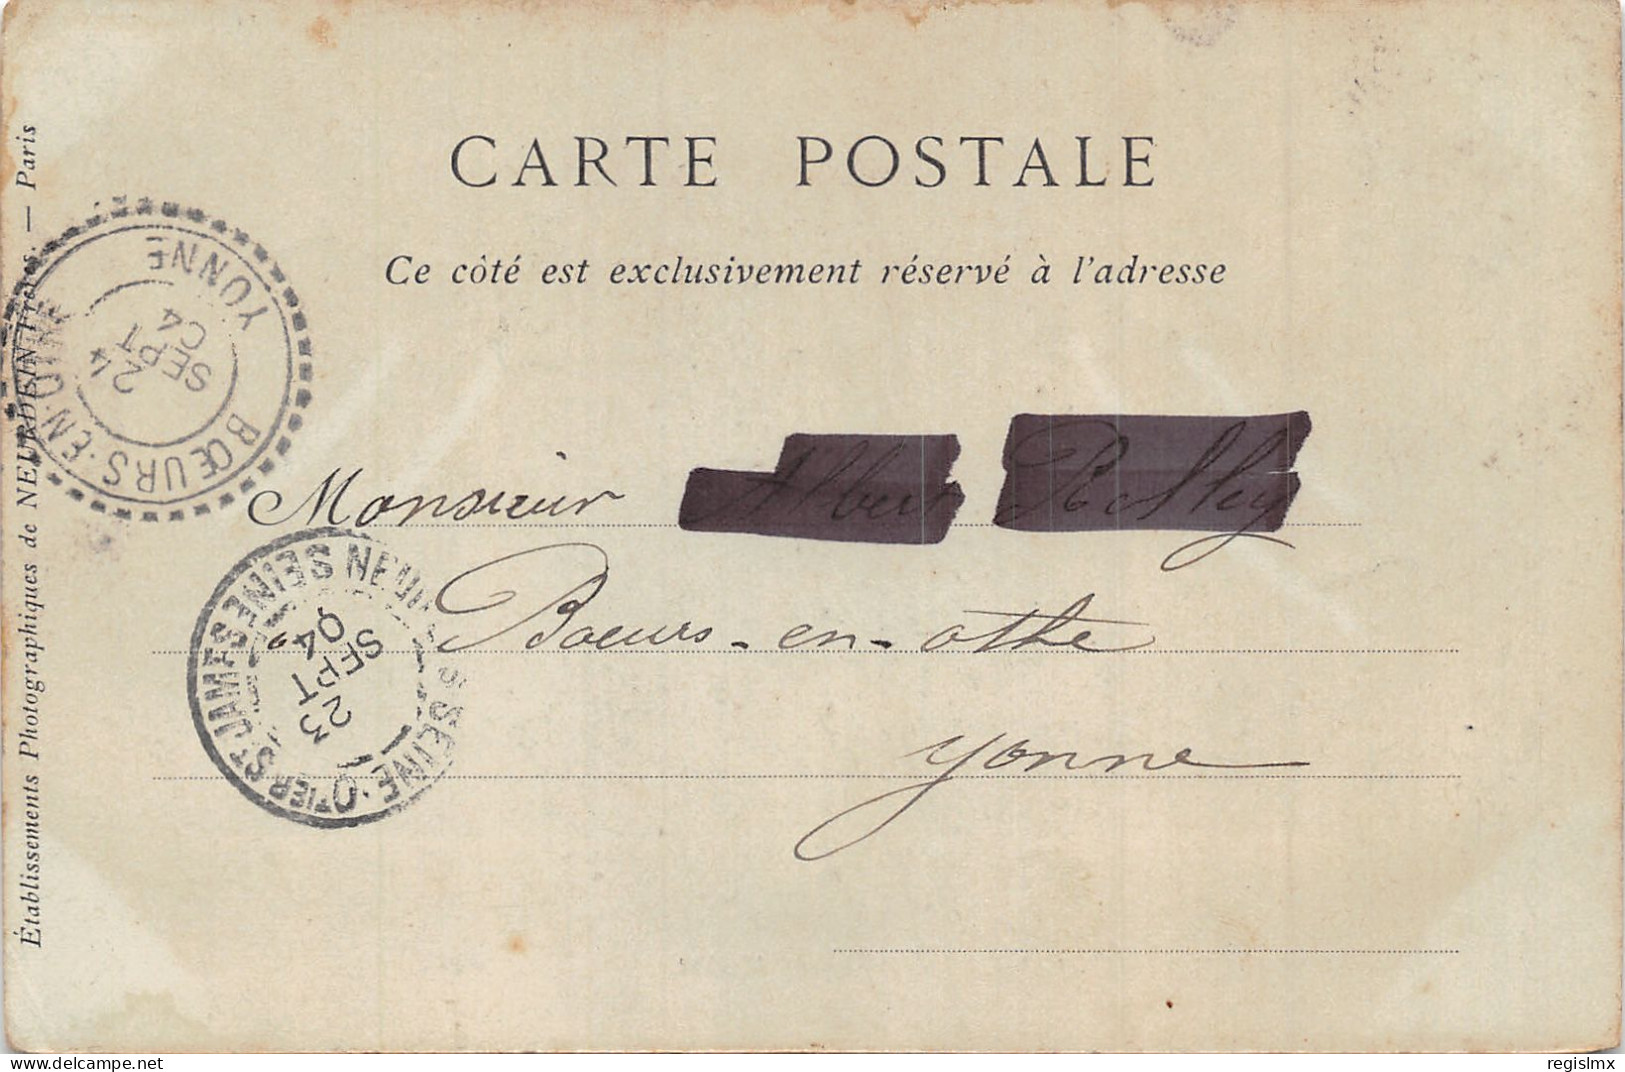 CARTE POSTALE
Ce côté est exclusivement réservé à l'adresse
Établissements Photographiques de NEURDEIN Frères. — Paris
YONNE
BŒURS-EN-OTHE
24
SEPT
04
Monsieur Albert
à Boeurs-en-othe
Yonne
NEUILLY S SEINE
SEINE·QTIER ST JAMES
23
SEPT
04
www.delcampe.net
regislmx